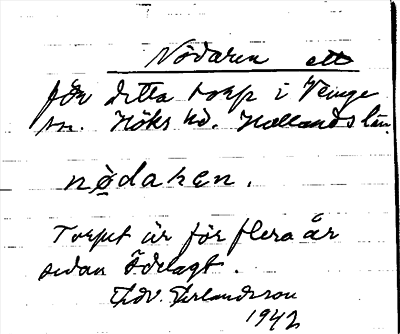 Nödaren ett
för detta torp i Veinge
sn. Höks hd. Hallands län.
nødaren.
Torpet är för flera år
sedan ödelagt.
Edv. Erlandsson
1942